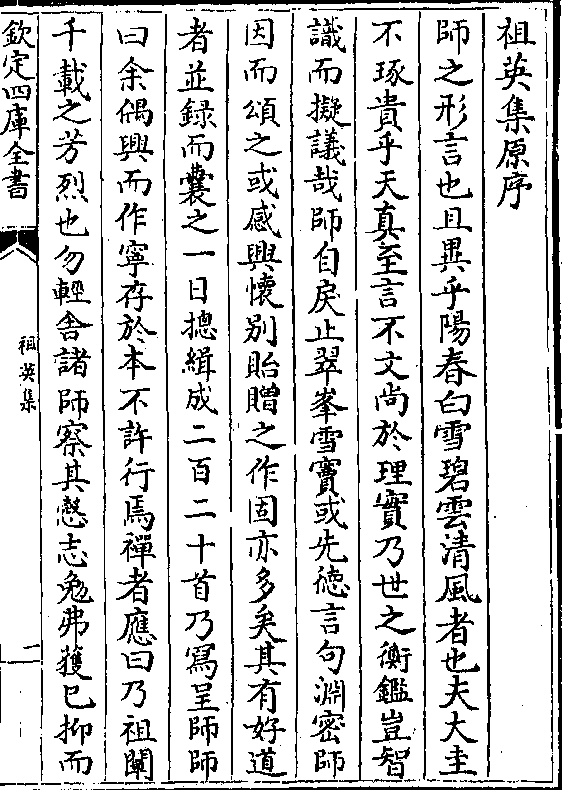 祖英集原序
師之形言也且異乎陽春白雪碧雲清風者也夫大圭
不琢貴乎天真至言不文尚於理實乃世之衡鑑豈智
識而擬議哉師自戾止翠峯雪竇或先徳言句淵密師
因而頌之或感興懷别貽贈之作固亦多矣其有好道
者並録而囊之一日摠緝成二百二十首乃寫呈師師
曰余偶興而作寧存於本不許行焉禪者應曰乃祖闡
千載之芳烈也勿輕舎諸師察其慤志勉弗獲已抑而
欽定四庫全書
祖英集
二